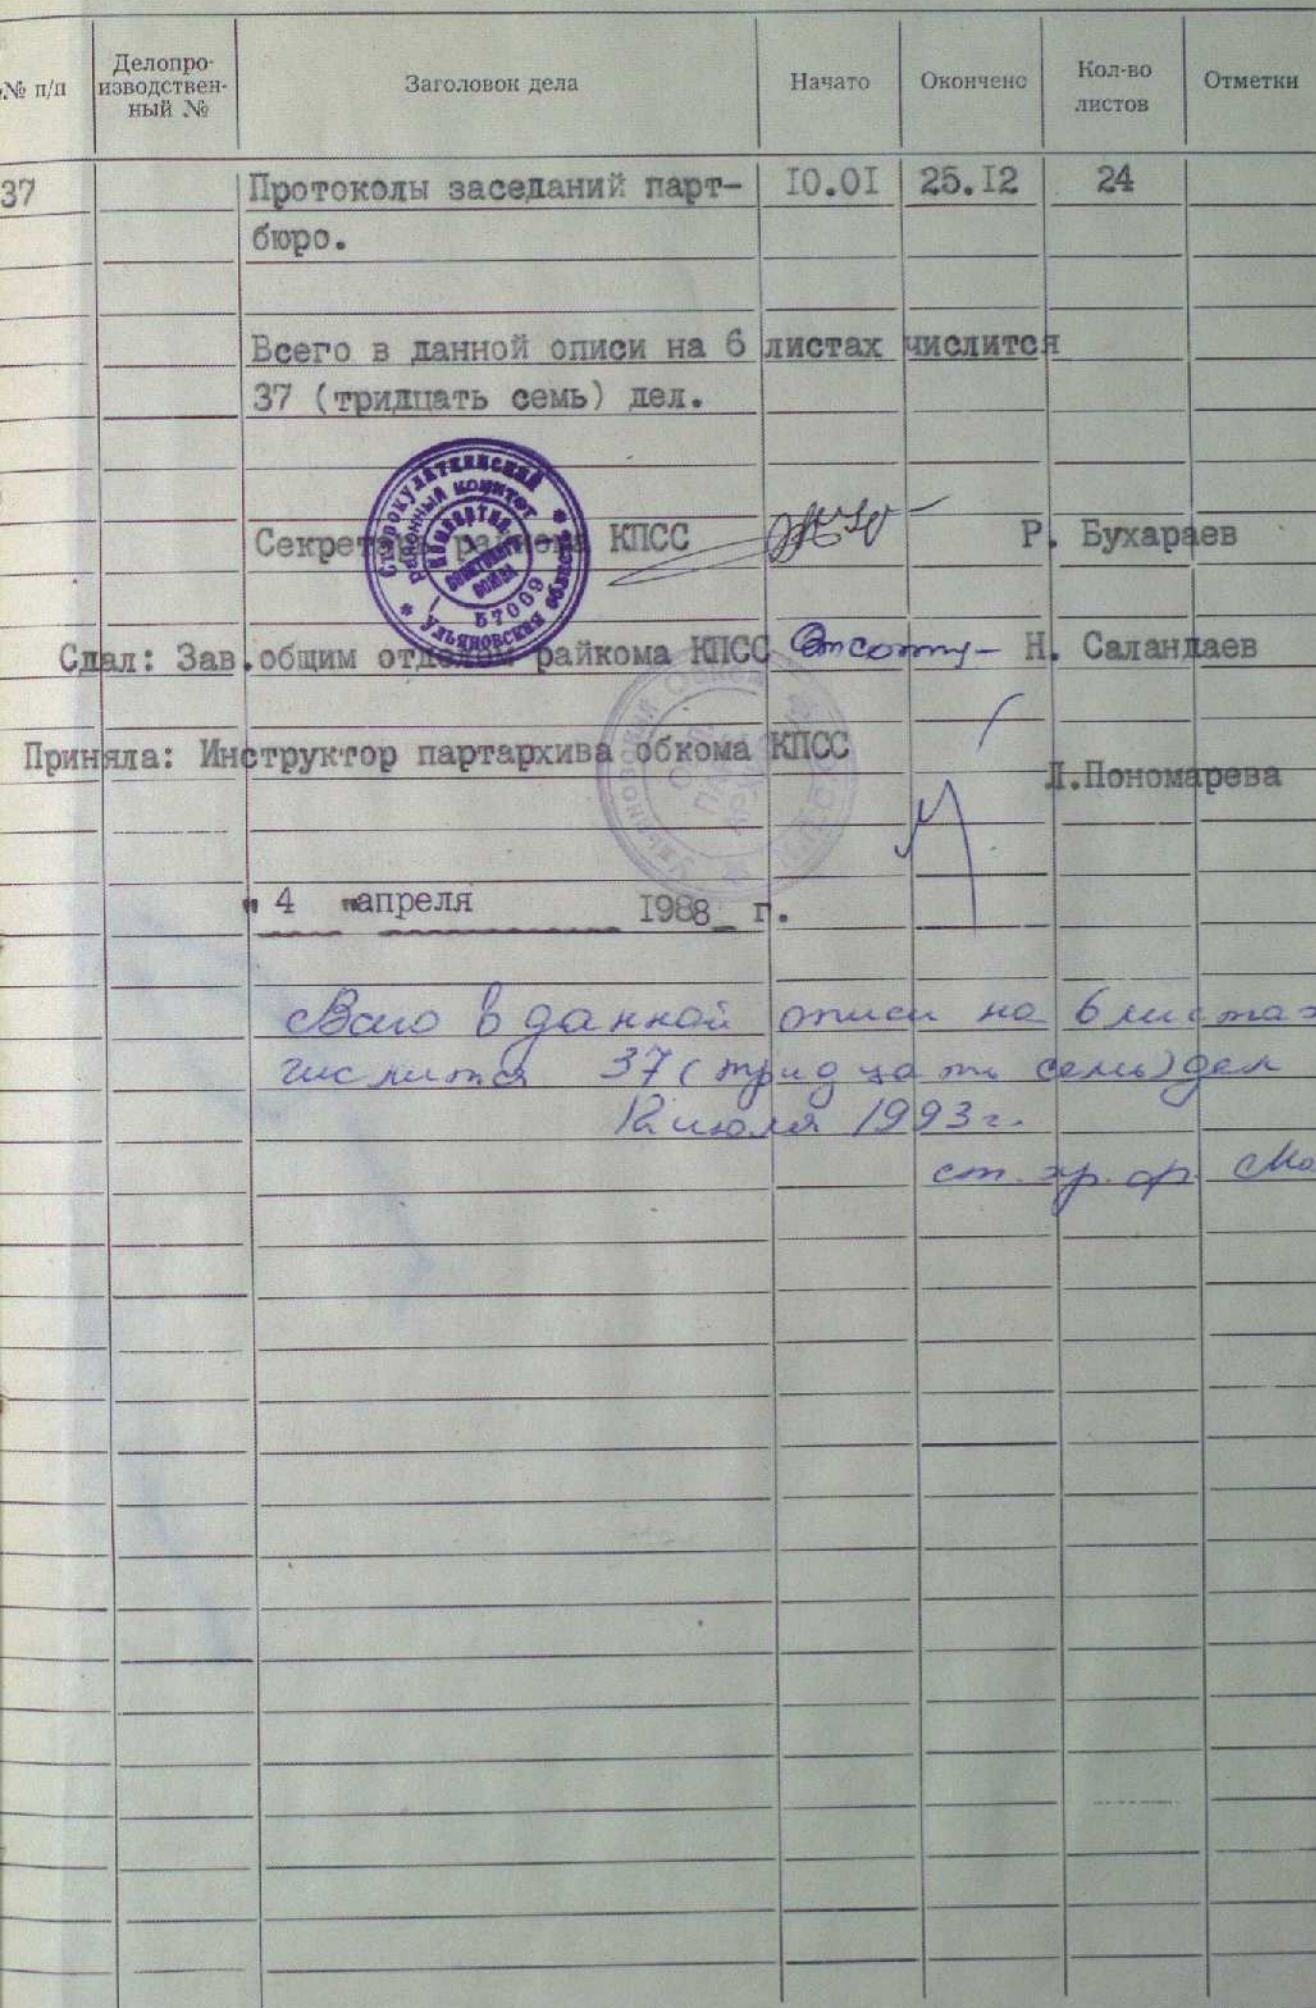 № п/п
Делопро-
изводствен-
ный №
Заголовок дела
Начато
Окончено
Кол-во
листов
Отметки
37 Протоколы заседаний парт- 10.01 25.12 24
бюро.
Всего в данной описи на 6 листах числится
37 (тридцать семь) дел.
Старокулаткинский
районный комитет
Коммартия
Советского
Союза
57009
Ульяновская область
Секретарь райкома КПСС Р. Бухараев
Сдал: Зав.общим отделом райкома КПСС Н. Саландаев
Приняла: Инструктор партархива обкома КПСС
Л.Пономарева
" 4 " апреля 1988 г.
Всего в данной описи на 6 листах
числится 37 (тридцать семь) дел
12 июля 1993 г.
ст. хр. ф.